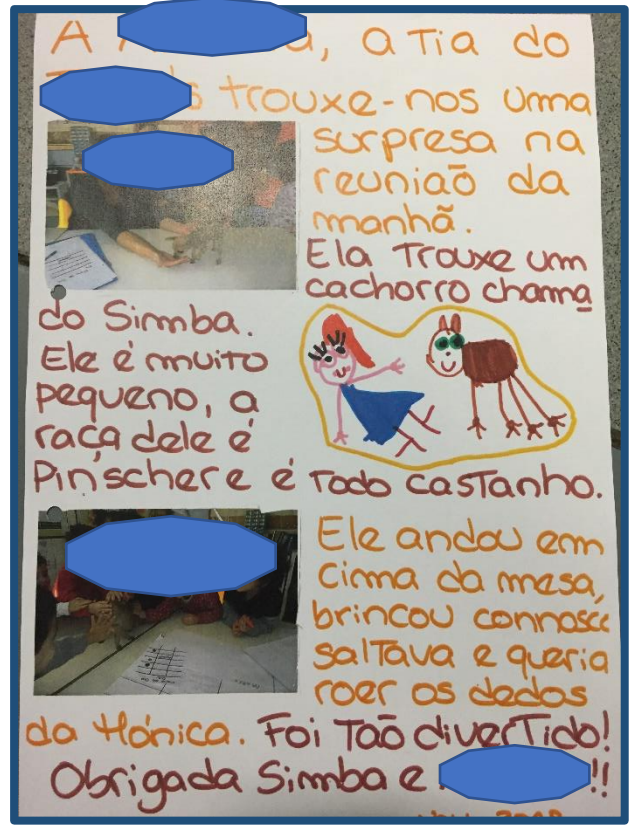 A a, a Tia do
s trouxe-nos uma
surpresa na
reunião da
manhã.
Ela Trouxe um
cachorro chama
do Simba.
Ele é muito
pequeno, a
raça dele é
Pinscher e é Todo casTanho.
Ele andou em
cima da mesa,
brincou connosco
salTava e queria
roer os dedos
da Mónica. Foi Tão diverTido!
Obrigada Simba e !!